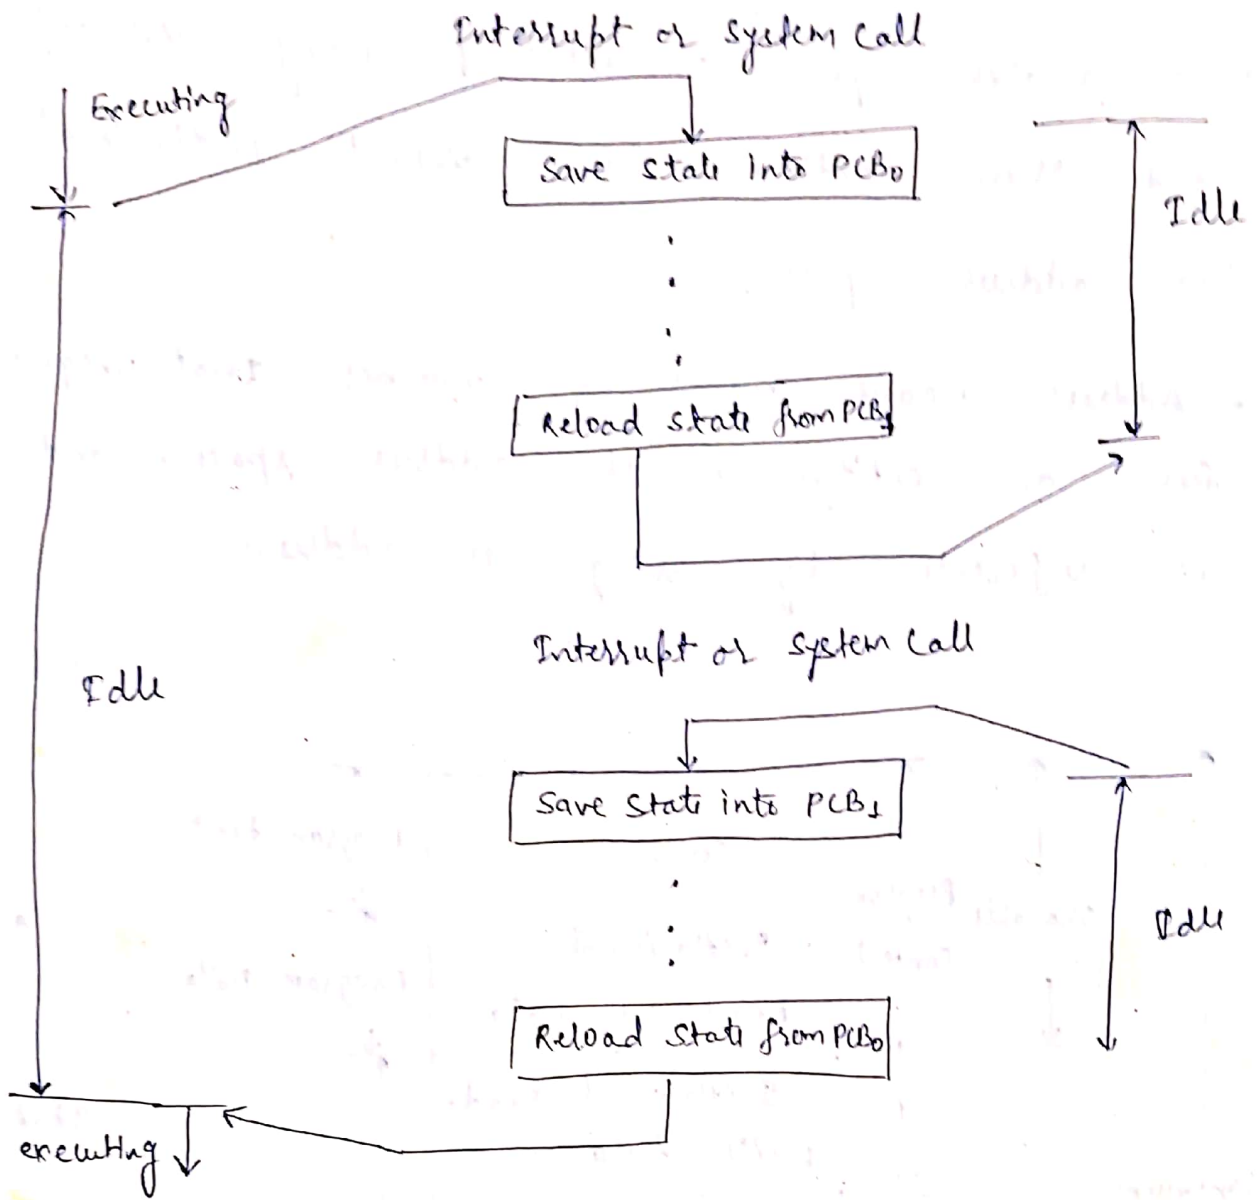 Interrupt or system call
Executing
Save state into PCB0
Idle
Reload state from PCB1
Interrupt or system call
Idle
Save state into PCB1
Idle
Reload state from PCB0
executing